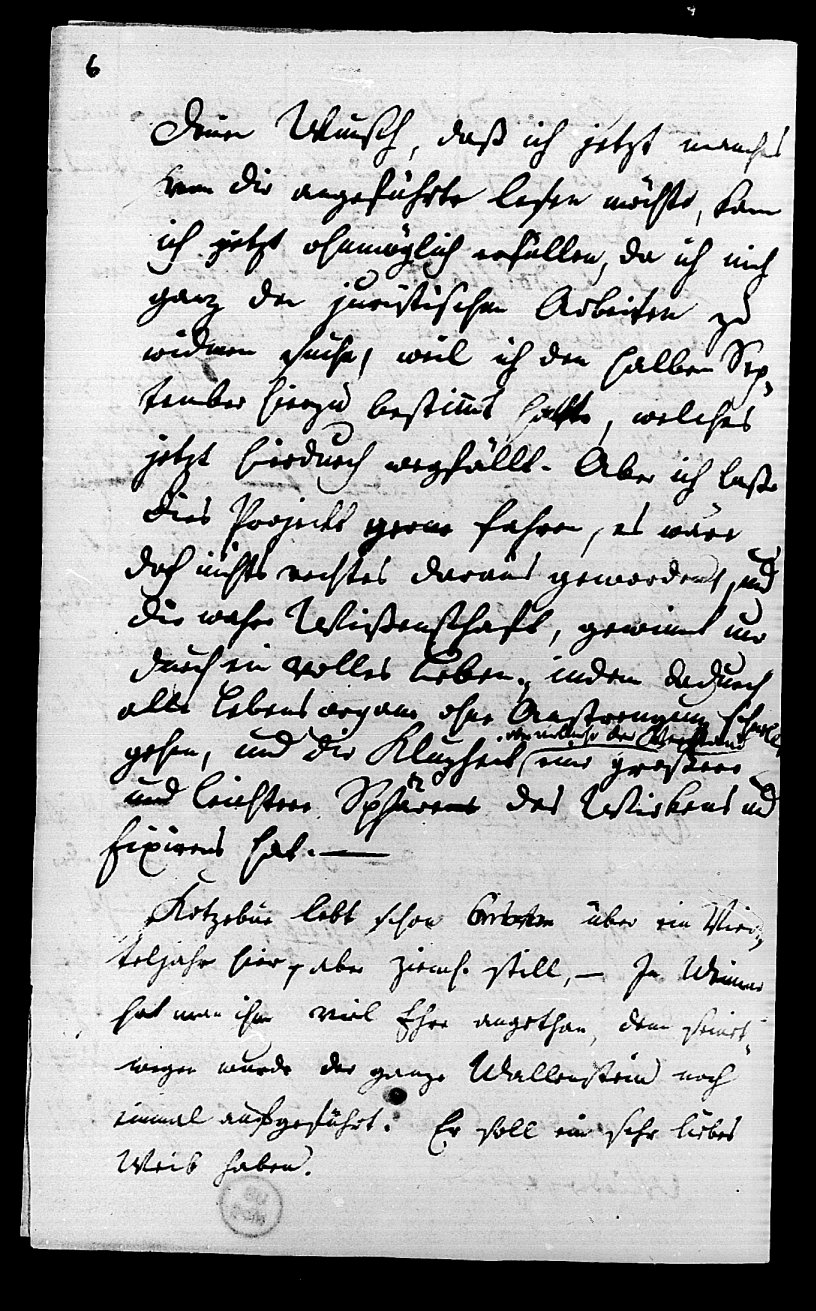 6
Deinen Wunsch, daß ich jetzt manches
von dir angeführte lesen möchte, kann
ich jetzt ohnmöglich erfüllen, da ich mich
ganz den juristischen Arbeiten zu
widmen suche, weil ich den halben Sep-
tember hierzu bestimmt hatte, welches
jetzt hierdurch wegfällt. Aber ich laße
dies Projeckt gerne fahren, es wäre
doch nichts rechtes daraus geworden, und
die wahre Wißenschaft, gewinnt nur
durch ein volles Leben, indem dadurch
alle Lebensorgane ohne Anstrengung
gehen, und die Klugheit eine größere
und leichtere Sphäre des Wirkens und
Fixirens hat. —
Kotzebue lebt schon über ein Vier-
teljahr hier, aber ziemł. still, — In Weimar
hat man ihm viel Ehre angethan, denn seinet-
wegen wurde der ganze Wallenstein noch
einmal aufgeführt. Er soll ein sehr liebes
Weib haben.